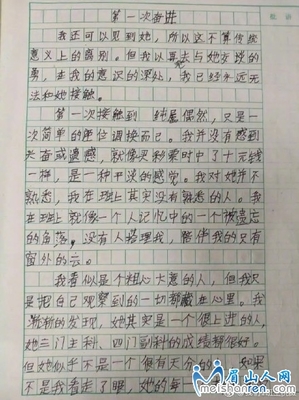 第一次奋进
我还可以见到她，所以这不算传统
意义上的离别。但我以再去与她交谈的
勇，在我的意识的深处，我已经永远无
法和她接触。
第一次接触到 纯属偶然，只是一
次简单的座位调换而已。我并没有感到
兴奋或遗憾，就像买彩票时中了十元钱
一样，是一种平淡的感觉。我对她并不
熟悉，我在班上其实没有熟悉的人。我
在班上就像一个人记忆中的一个被遗忘
的角落，没有人搭理我，陪伴我的只有
窗外的云。
我看似是个粗心大意的人，但我只
是把自己观察到的一切都藏在心里。我
渐渐的发现，她其实是一个很上进的人，
她三门主科、四门副科的成绩都很好。
但她似乎不是一个很有天分的
不是我看走了眼，她的每
眉山人网
meishanren.com